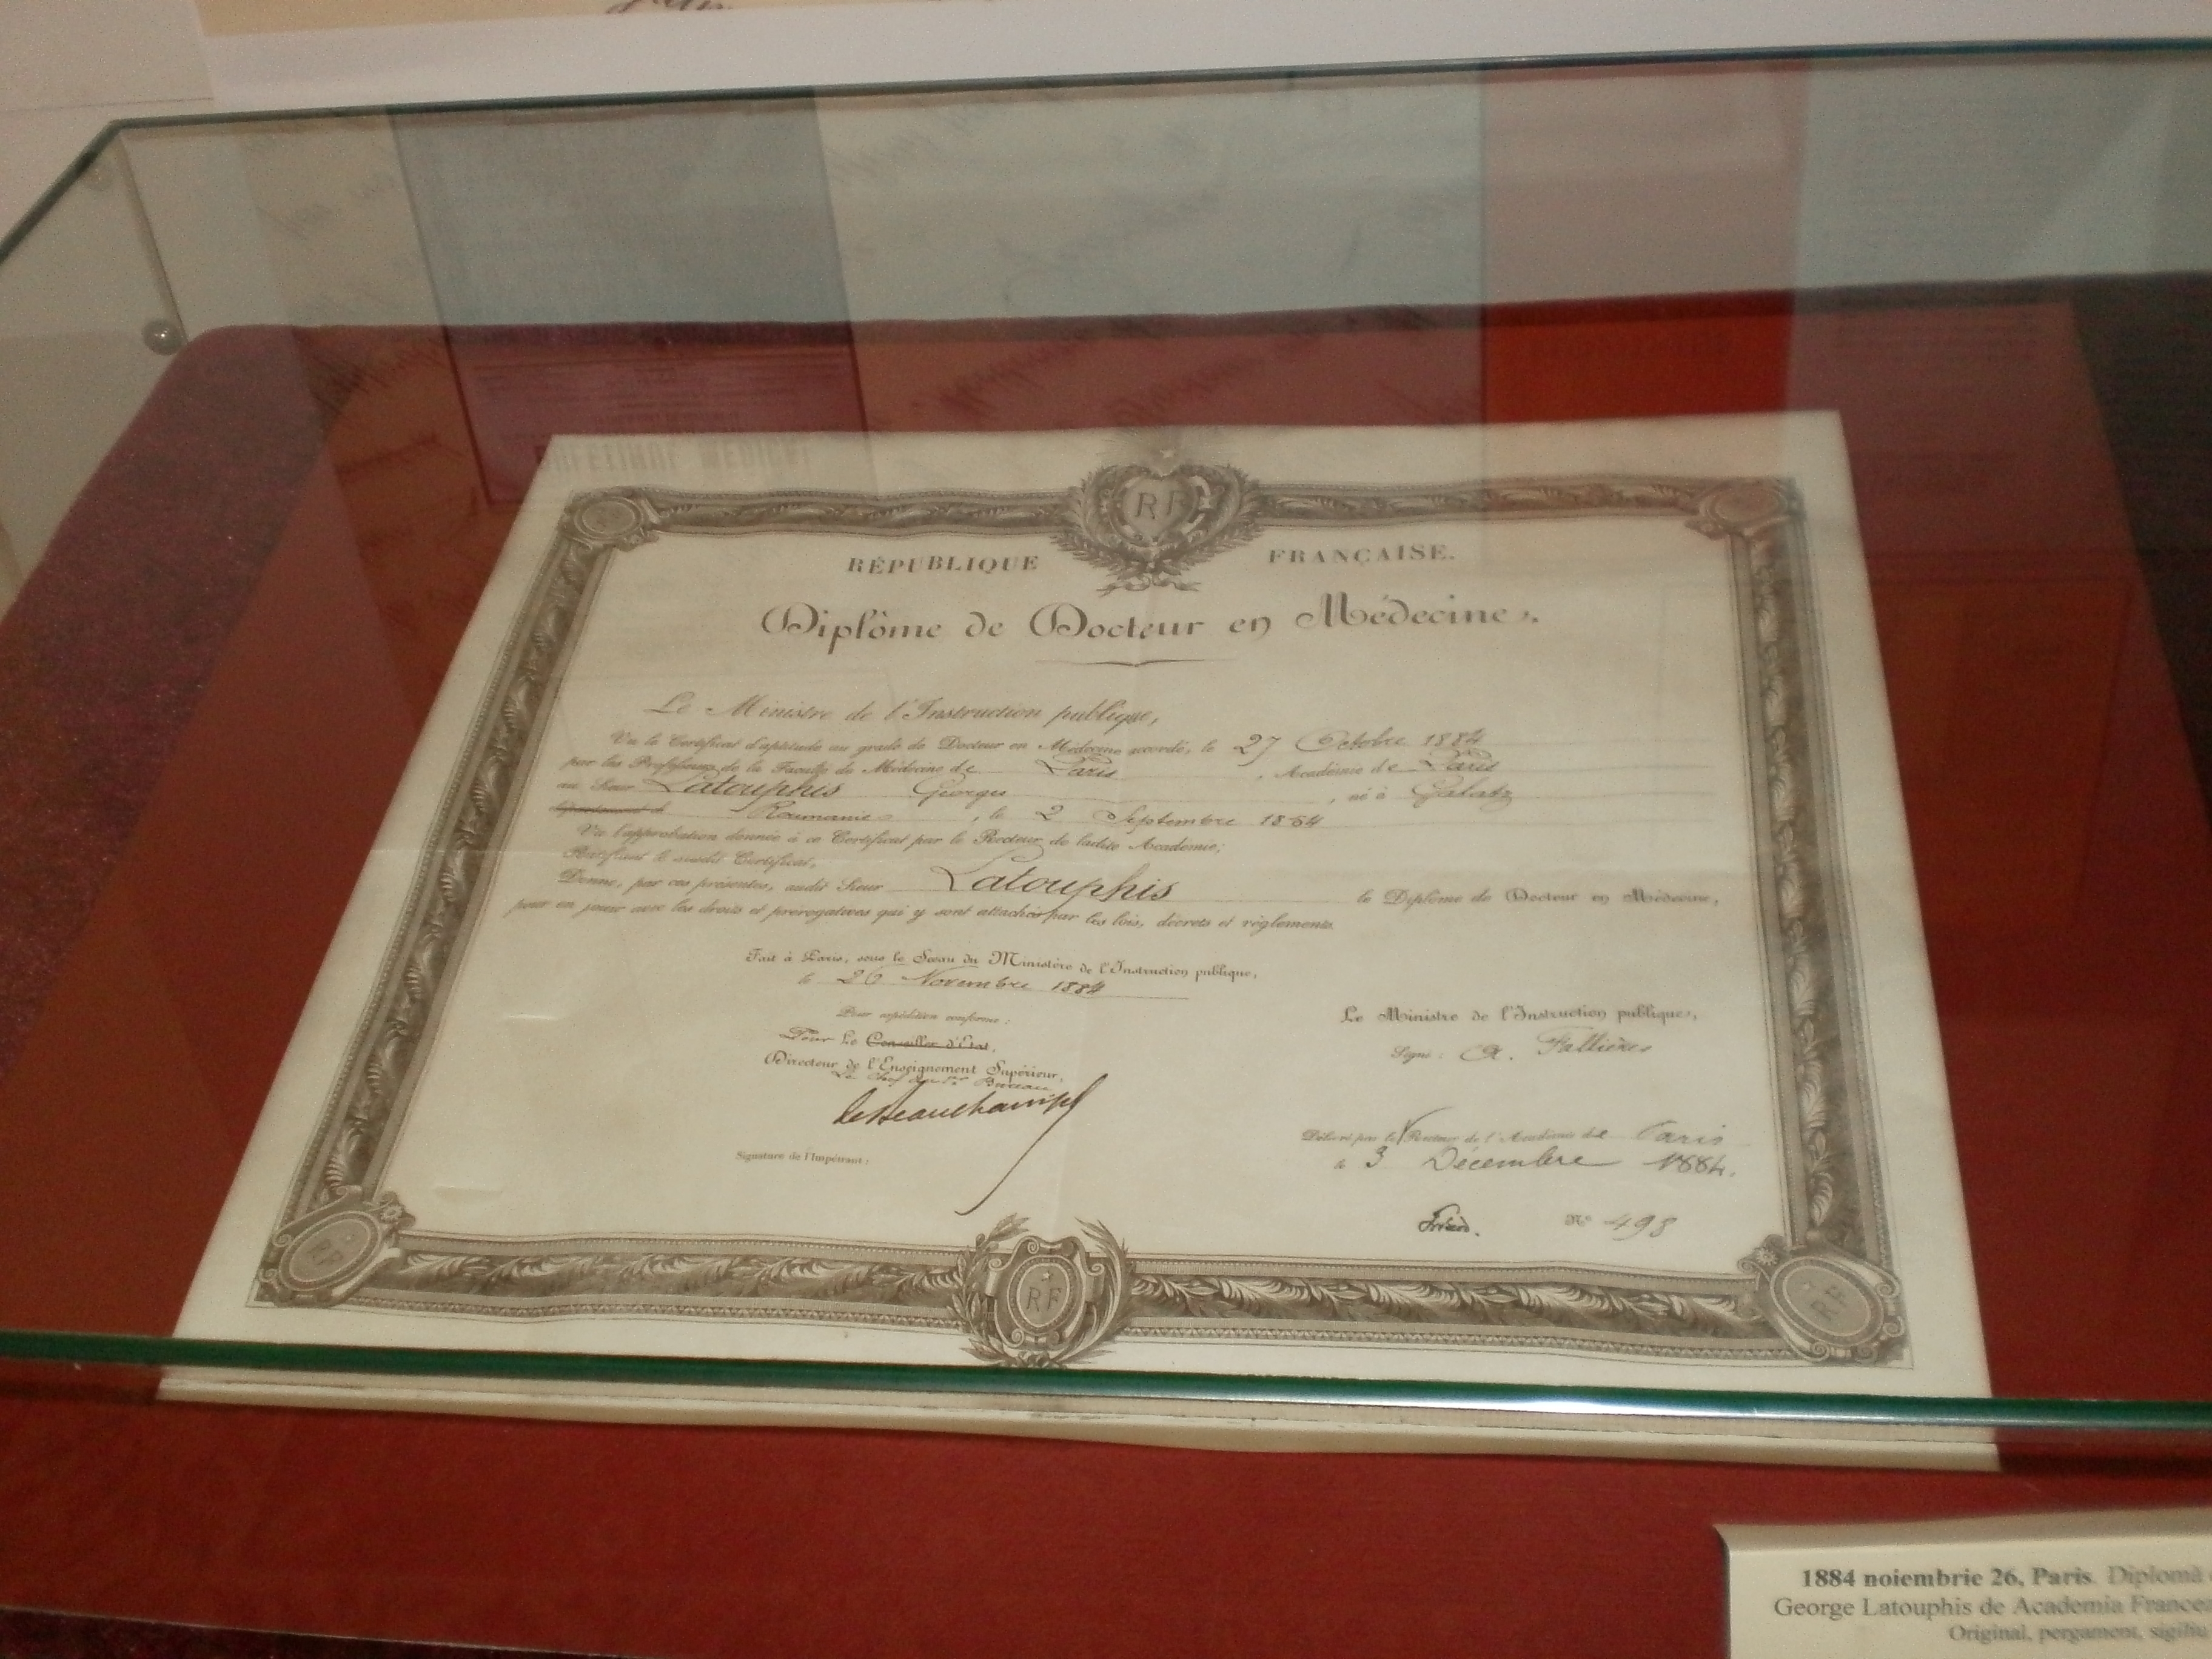 RF
RÉPUBLIQUE FRANÇAISE.
Diplôme de Docteur en Médecine.
Le Ministre de l'Instruction publique,
Vu le Certificat d'aptitude au grade de Docteur en Médecine accordé, le 27 Octobre 1884
par les Professeurs de la Faculté de Médecine de Paris, Académie de Paris
au Sieur Latouphis Georges, né à Galatz
département de Roumanie, le 2 Septembre
Vu l'approbation donnée à ce Certificat par le Recteur de ladite Académie;
Ratifiant le susdit Certificat,
Donne, par ces présentes, audit Sieur Latouphis le Diplôme de Docteur en Médecine,
pour en jouir avec les droits et prérogatives qui y sont attachés par les lois, décrets et règlements.
Fait à Paris, sous le Sceau du Ministère de l'Instruction publique,
le 26 Novembre 1884
Pour expédition conforme:
Pour Le Conseiller d'État,
Directeur de l'Enseignement Supérieur,
Le Chef du 1er Bureau
Le Ministre de l'Instruction publique,
Signé: A. Fallières
Signature de l'Impétrant:
Délivré par le Recteur de l'Académie de Paris
le 3 Décembre 1884.
No 498
RF
RF
RF
1884 noiembrie 26, Paris. Diplomă
George Latouphis de Academia
Original, pergament,